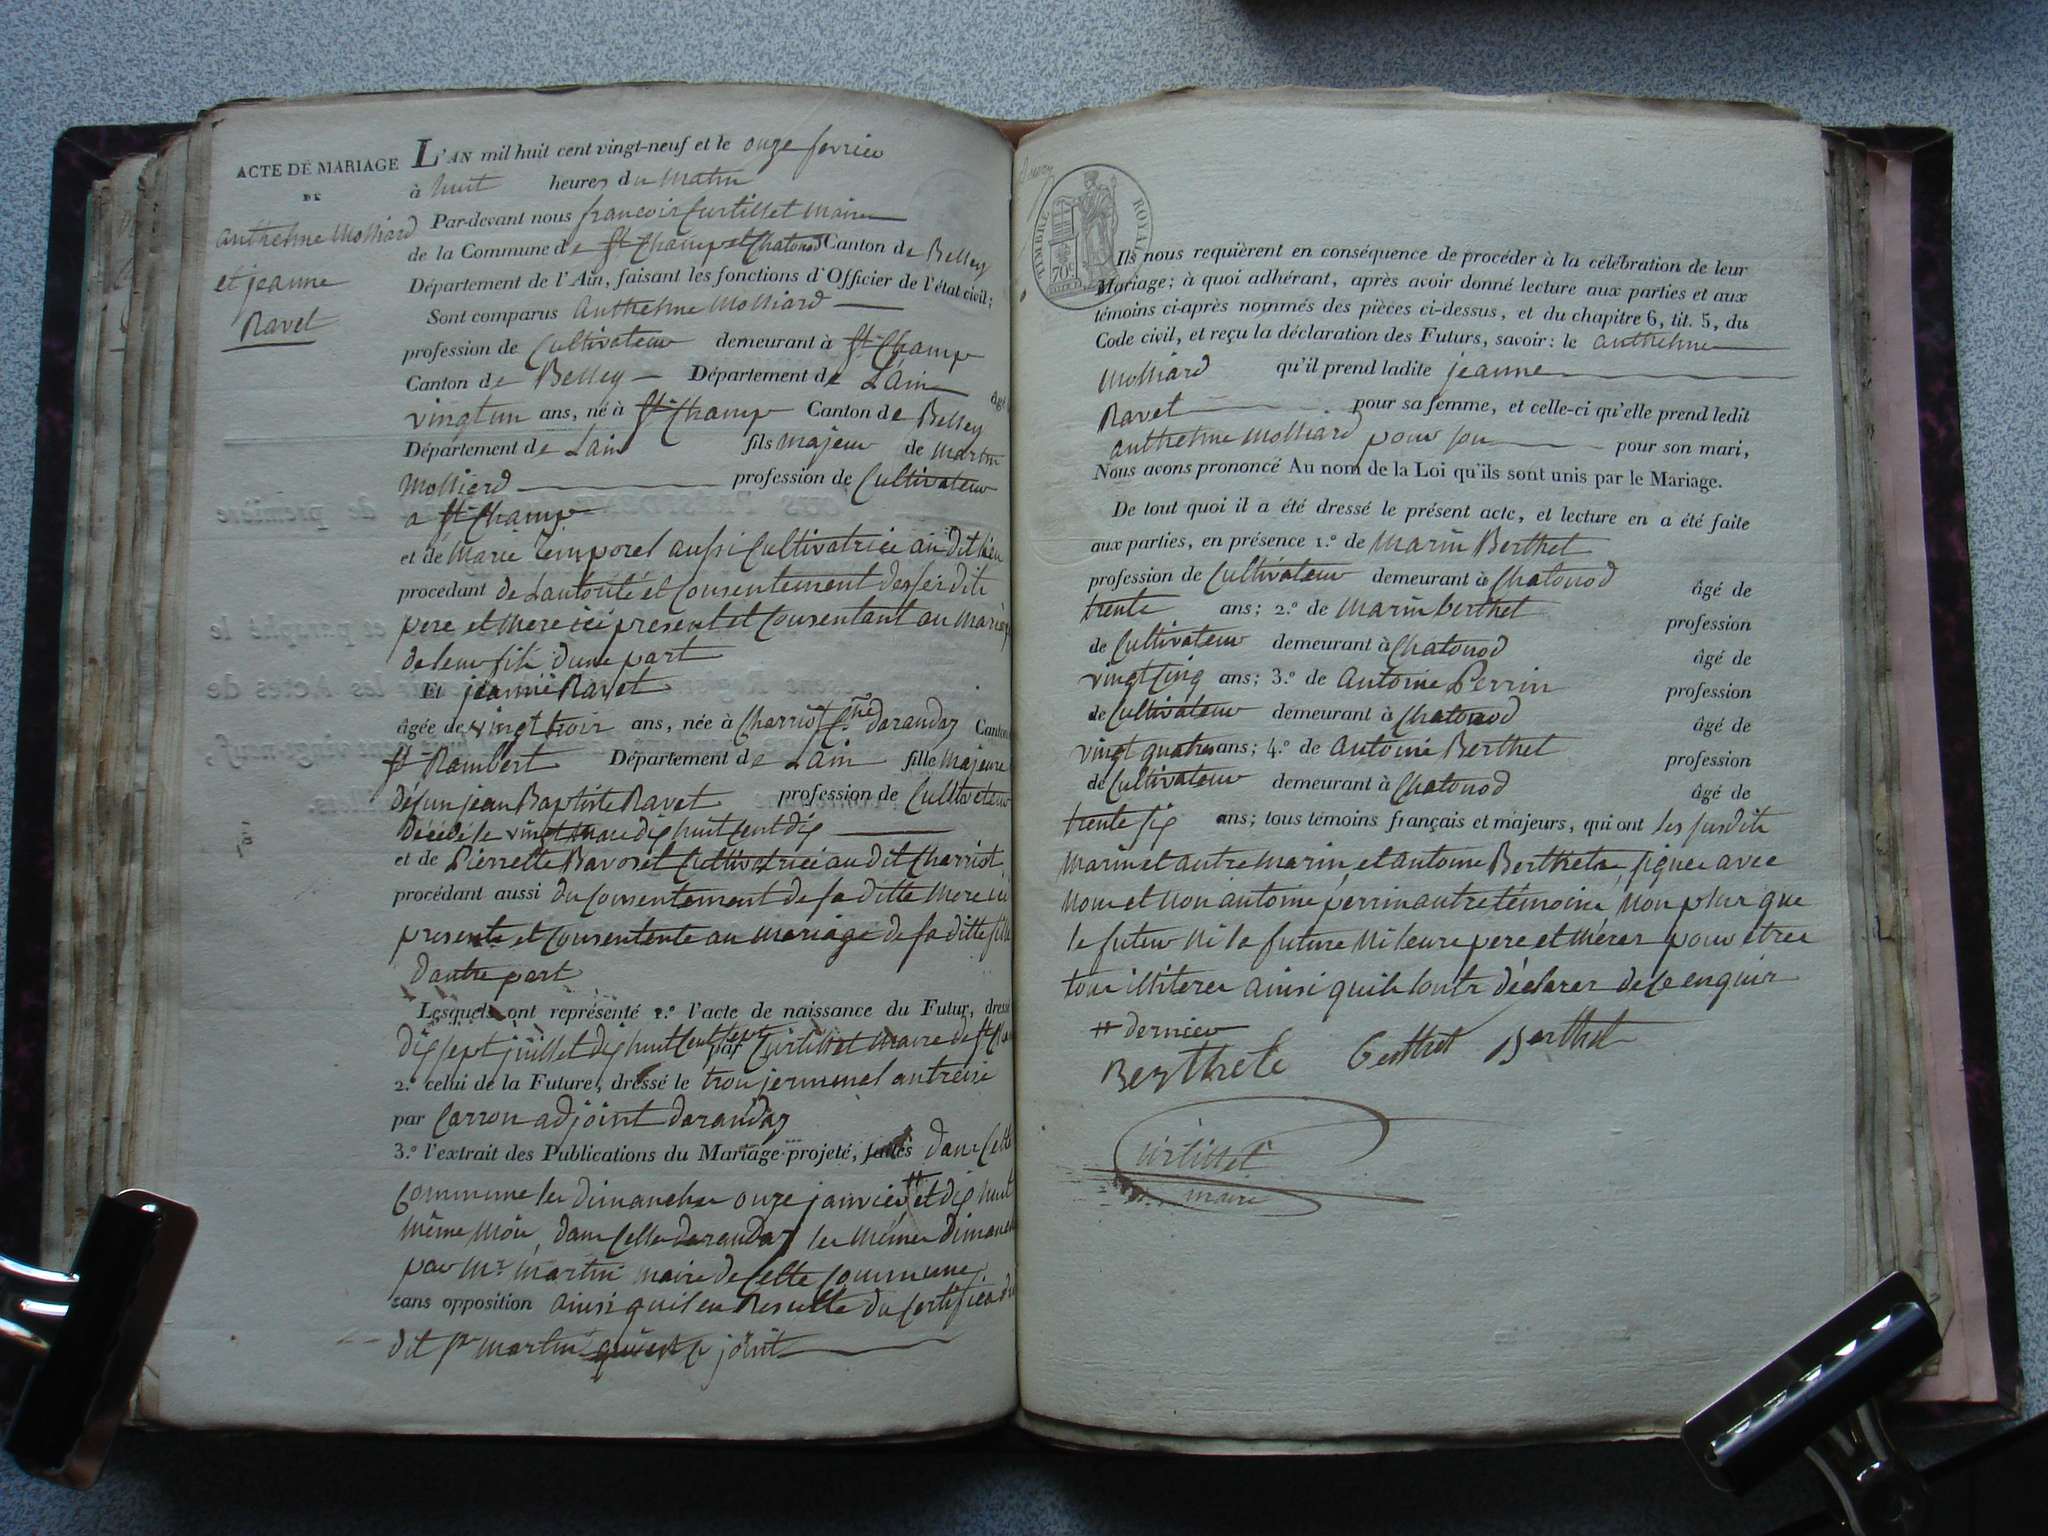 ACTE DE MARIAGE
DE
anthelme Molliard
et jeanne
Ravet
L'AN mil huit cent vingt-neuf et le onze fevrier
à huit heures du Matin
Par-devant nous francois Curtillet Maire
de la Commune de St Champ et Chatonod Canton de Belley
Département de l'Ain, faisant les fonctions d'Officier de l'état civil;
Sont comparus anthelme Molliard
profession de Cultivateur demeurant à St Champ
Canton de Belley Département de Lain âgé
vingt un ans, né à St Champ Canton de Belley
Département de Lain fils Majeur de Martin
Molliard profession de Cultivateur
a St Champ
et de Marie Temporel aussi Cultivatrice au dit lieu
procédant de Lautorité et Consentement desses dits
pere et Mere ici present et Consentant au Mariage
de leur fils dune part
Et jeanne Ravet
âgée de vingt trois ans, née à Charriot Cne darandas Canton
St Rambert Département de Lain fille Majeure
défun jean Baptiste Ravet profession de Cultivateur
Décédé le vingt Mai dix huit Cent dix
et de Pierrette Bavorel Cultivatrice au dit Charriot
procédant aussi du Consentement de sa ditte Mere ici
presente et Consentente au Mariage de sa ditte fille
dautre part
Lesquels ont représenté 1.º l'acte de naissance du Futur, dressé
dix sept juillet dix huit Cent sept par Curtillet Maire de St Champ
2.º celui de la Future, dressé le trois jerminal antreise
par Carron adjoint darandas
3.º l'extrait des Publications du Mariage projeté, faites dans Cette
Commune les dimanches onze janvier # et dix huit
même Mois, dans Celle darandas les Mêmes Dimanches
par Mr Martin maire de Cette Commune
sans opposition ainsi quil en Resulte du Certificat du
dit Sr Martin qui est Cy joint
TIMBRE ROYAL
70c
Ils nous requièrent en conséquence de procéder à la célébration de leur
Mariage; à quoi adhérant, après avoir donné lecture aux parties et aux
témoins ci-après nommés des pièces ci-dessus, et du chapitre 6, tit. 5, du
Code civil, et reçu la déclaration des Futurs, savoir: le anthelme
Molliard qu'il prend ladite jeanne
Ravet pour sa femme, et celle-ci qu'elle prend ledit
anthelme Molliard pour son pour son mari,
Nous avons prononcé Au nom de la Loi qu'ils sont unis par le Mariage.
De tout quoi il a été dressé le présent acte, et lecture en a été faite
aux parties, en présence 1.º de Marin Berthet
profession de Cultivateur demeurant à Chatonod âgé de
trente ans; 2.º de Marin berthet profession
de Cultivateur demeurant à Chatonod âgé de
vingt Cinq ans; 3.º de Antoine Perrin profession
de Cultivateur demeurant à Chatonod âgé de
vingt quatre ans; 4.º de Antoine Berthet profession
de Cultivateur demeurant à Chatonod âgé de
trente six ans; tous témoins français et majeurs, qui ont les susdits
Marin et autre Marin et antoine Berthets, signer avec
Nous et Non antoine perrin autre témoins, Non plus que
le futeur Ni la future Ni leurs pere et Mérer pour etrer
tous illiterer ainsi quils lonts déclarer de Ce enquis
# dernier
Berthete Berthet Berthet
Curtillet
maire